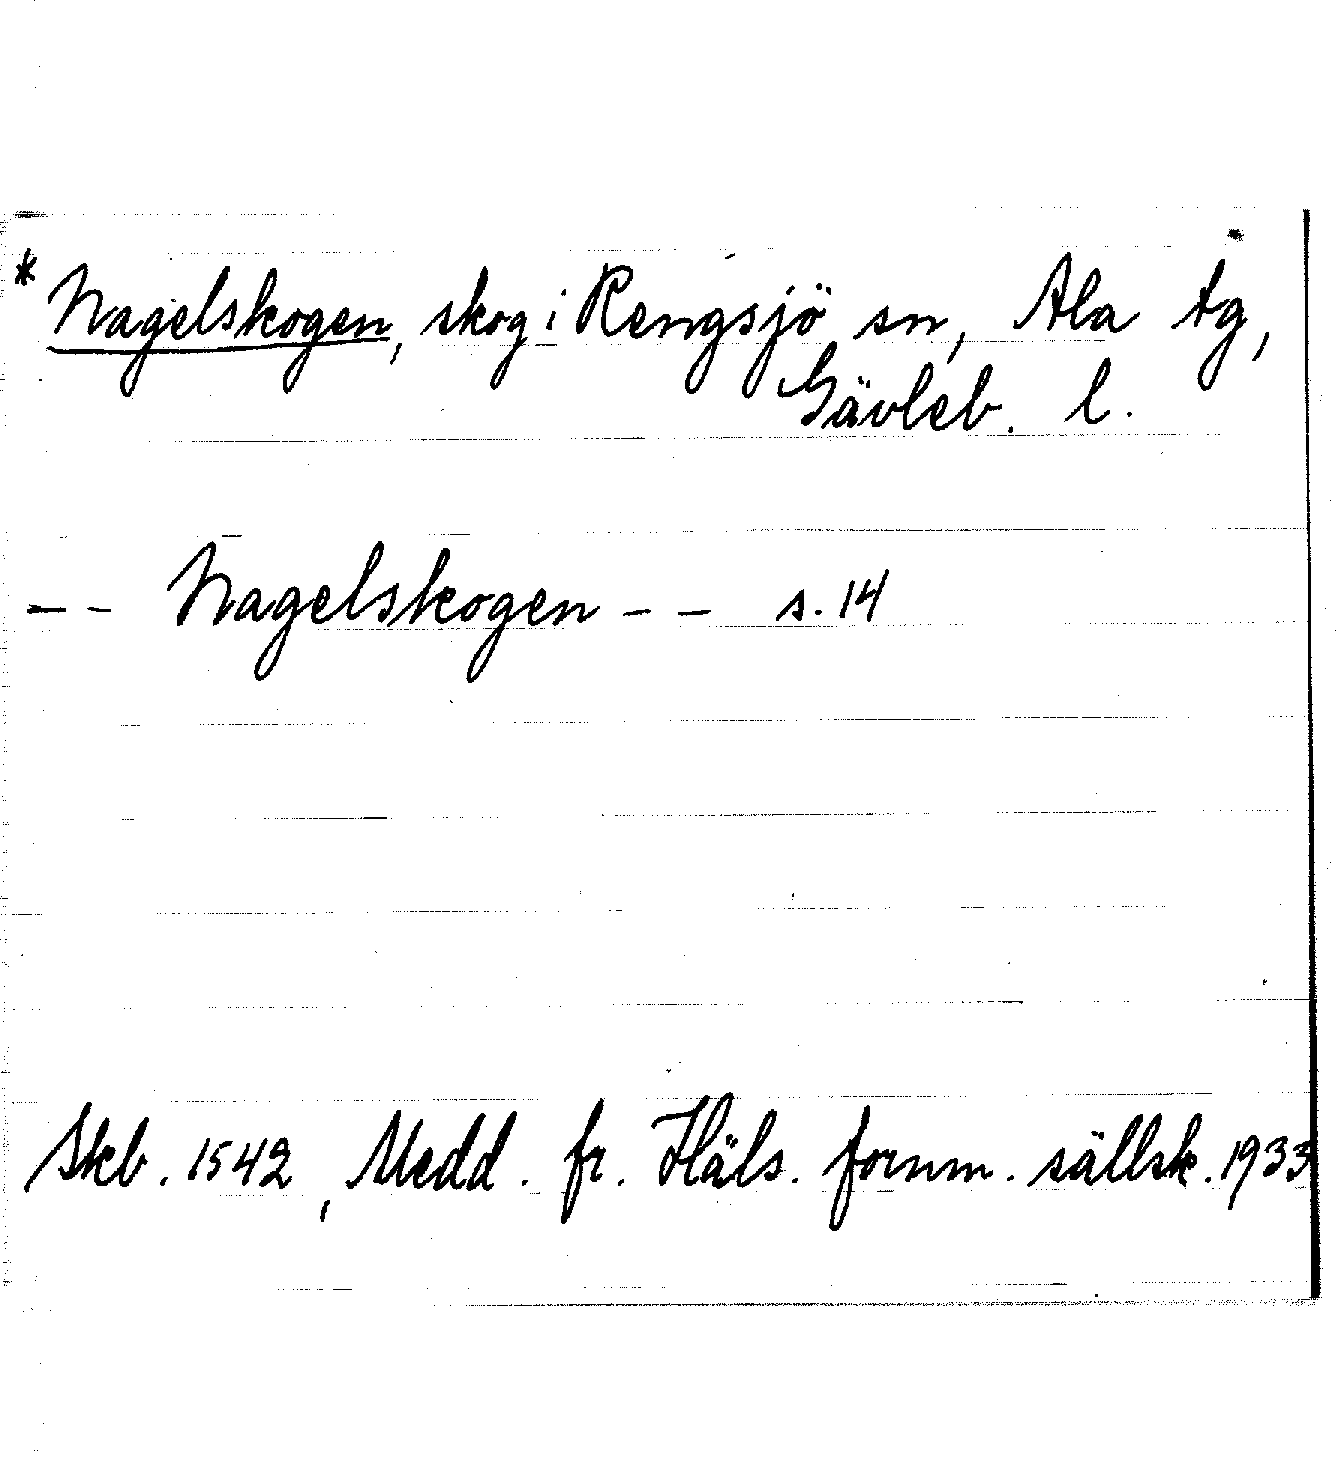 * Nagelskogen, skog i Rengsjö sn, Ala tg,
Gävleb. l.
-- Nagelskogen -- s. 14
Skb. 1542, Medd. fr. Häls. fornm. sällsk. 1933